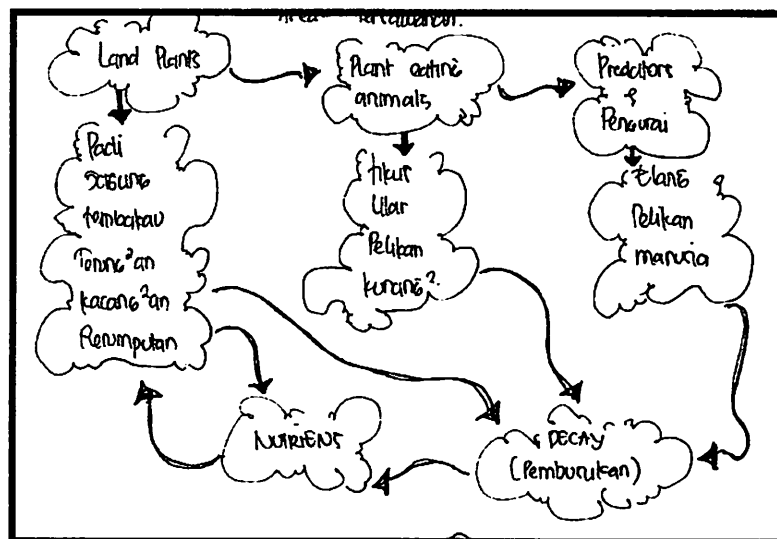 Land Plants
Plant eating
animals
Predators
&
Pengurai
Padi
Jagung
tembakau
Terong²an
kacang²an
Rerumputan
tikus
Ular
Pelikan
Elang
Pelikan
manusia
NUTRIENS
DECAY
(Pemburukan)